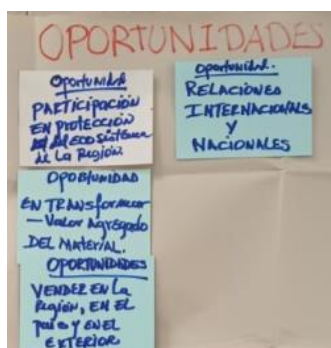 OPORTUNIDADES
Oportunidad
PARTICIPACIÓN
EN PROTECCIÓN
ECOSISTEMA
de La Región.
Oportunidad.
RELACIONES
INTERNACIONALS
Y
NACIONALES
OPORTUNIDAD
EN TRANSformar
— Valor Agregado
DEL Material.
OPORTUNIDADES
VENDER EN La
Región, EN EL
país y EN EL
EXTERIOR